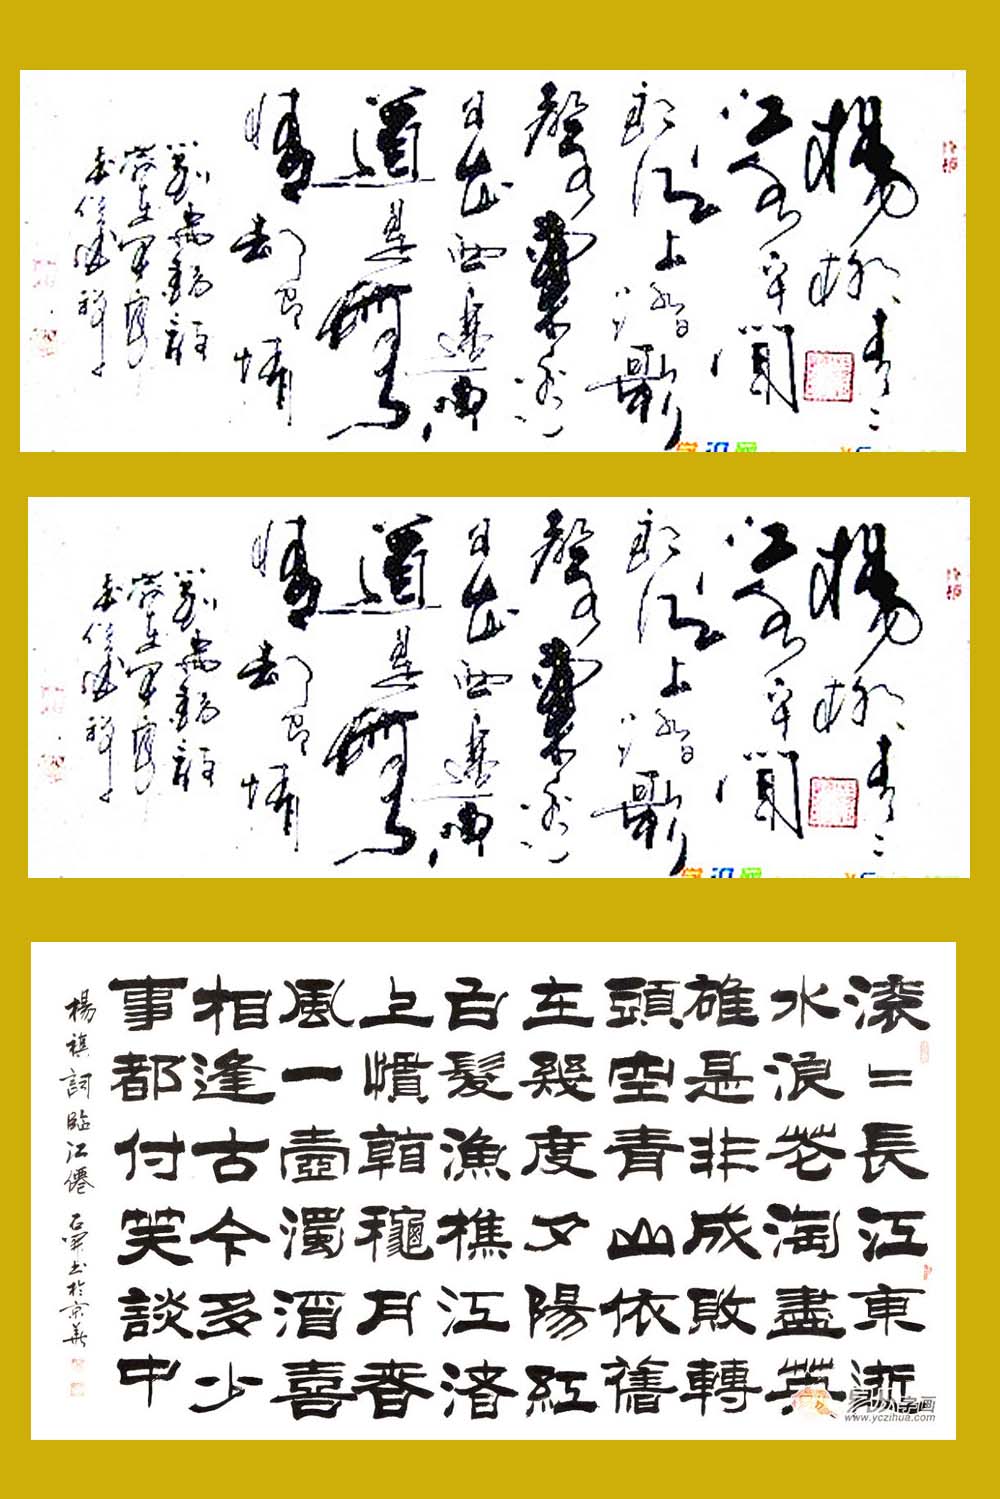 楊柳青=
江水平聞
郎江上踏歌
聲東邊
日出西邊雨
道是無
晴却有晴
劉禹錫詩
楊柳青=
江水平聞
郎江上踏歌
聲東邊
日出西邊雨
道是無
晴却有晴
劉禹錫詩
滾=長江東逝
水浪花淘盡英
雄是非成敗轉
頭空青山依舊
在幾度夕陽紅
白髮漁樵江渚
上慣看龝月春
風一壺濁酒喜
相逢古今多少
事都付笑談中
楊慎詞臨江僊 石開书於京華
字画
www.yczihua.com